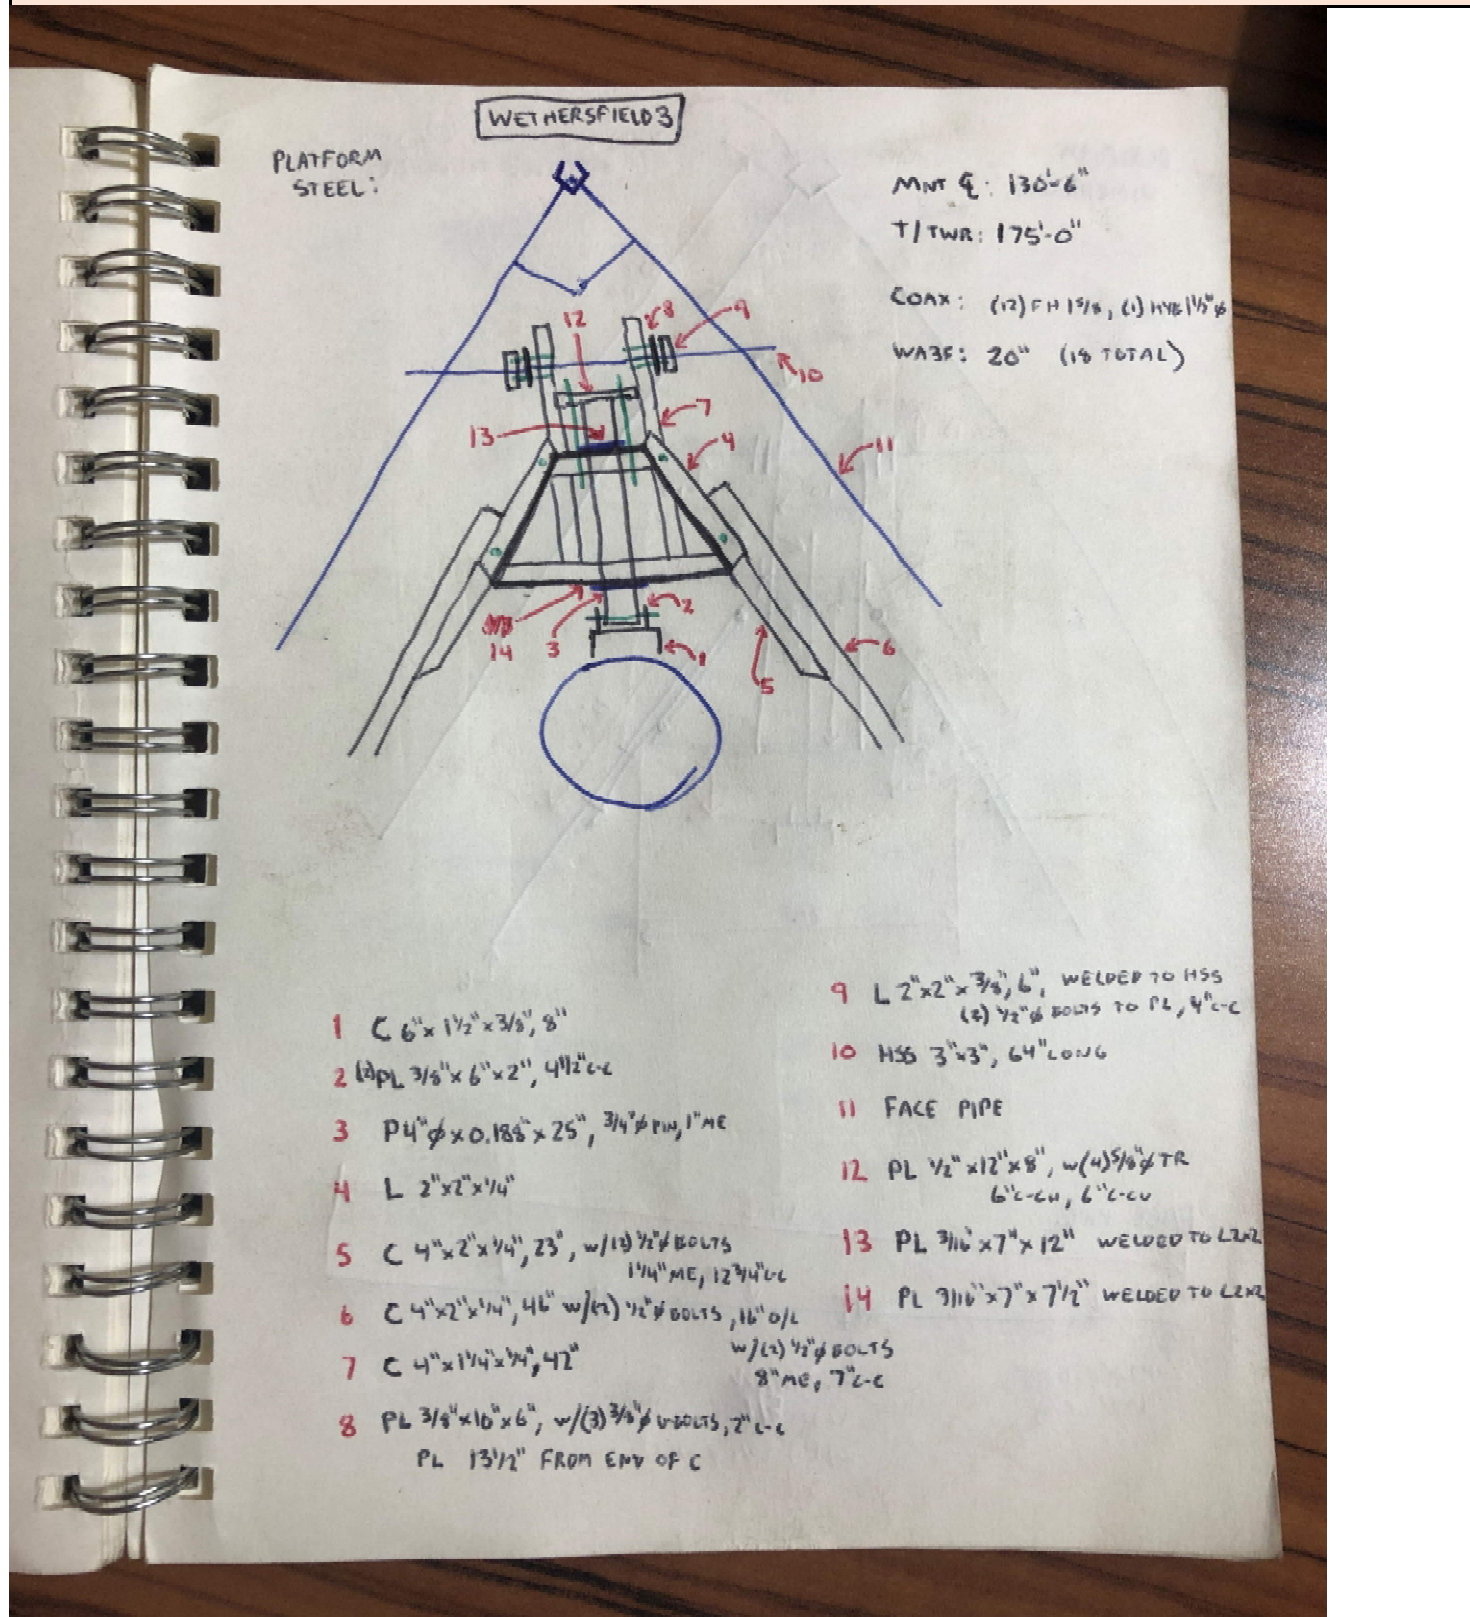 WETHERSFIELD 3
PLATFORM
STEEL:
MNT ℄: 130'-6"
T/TWR: 175'-0"
COAX: (12) FH 1 5/8, (1) HYB 1 1/2" ø
WA3F: 20" (18 TOTAL)
8
9
12
10
7
13
4
11
2
14
3
1
6
5
1 C 6" x 1 1/2" x 3/8", 8"
2 (2) PL 3/8" x 6" x 2", 4 1/2" C-C
3 P 4" ø x 0.188" x 25", 3/4" ø PIN, 1" ME
4 L 2" x 2" x 1/4"
5 C 4" x 2" x 1/4", 23", w/(2) 1/2" ø BOLTS
1 1/4" ME, 12 3/4" C-C
6 C 4" x 2" x 1/4", 46" w/(2) 1/2" ø BOLTS, 16" O/L
7 C 4" x 1 1/4" x 1/4", 42"
w/(2) 1/2" ø BOLTS
8" ME, 7" C-C
8 PL 3/8" x 10" x 6", w/(3) 3/8" ø U-BOLTS, 2" C-C
PL 13 1/2" FROM END OF C
9 L 2" x 2" x 3/8", 6", WELDED TO HSS
(2) 1/2" ø BOLTS TO PL, 4" C-C
10 HSS 3" x 3", 64" LONG
11 FACE PIPE
12 PL 1/2" x 12" x 8", w/(4) 5/8" ø TR
6" C-C H, 6" C-C V
13 PL 3/16" x 7" x 12" WELDED TO L2x2
14 PL 3/16" x 7" x 7 1/2" WELDED TO L2x2